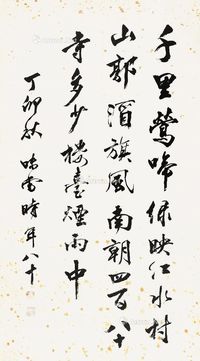 千里莺啼绿映江水村
山郭酒旗风南朝四百八十
寺多少楼台烟雨中
丁卯秋 味雪时年八十